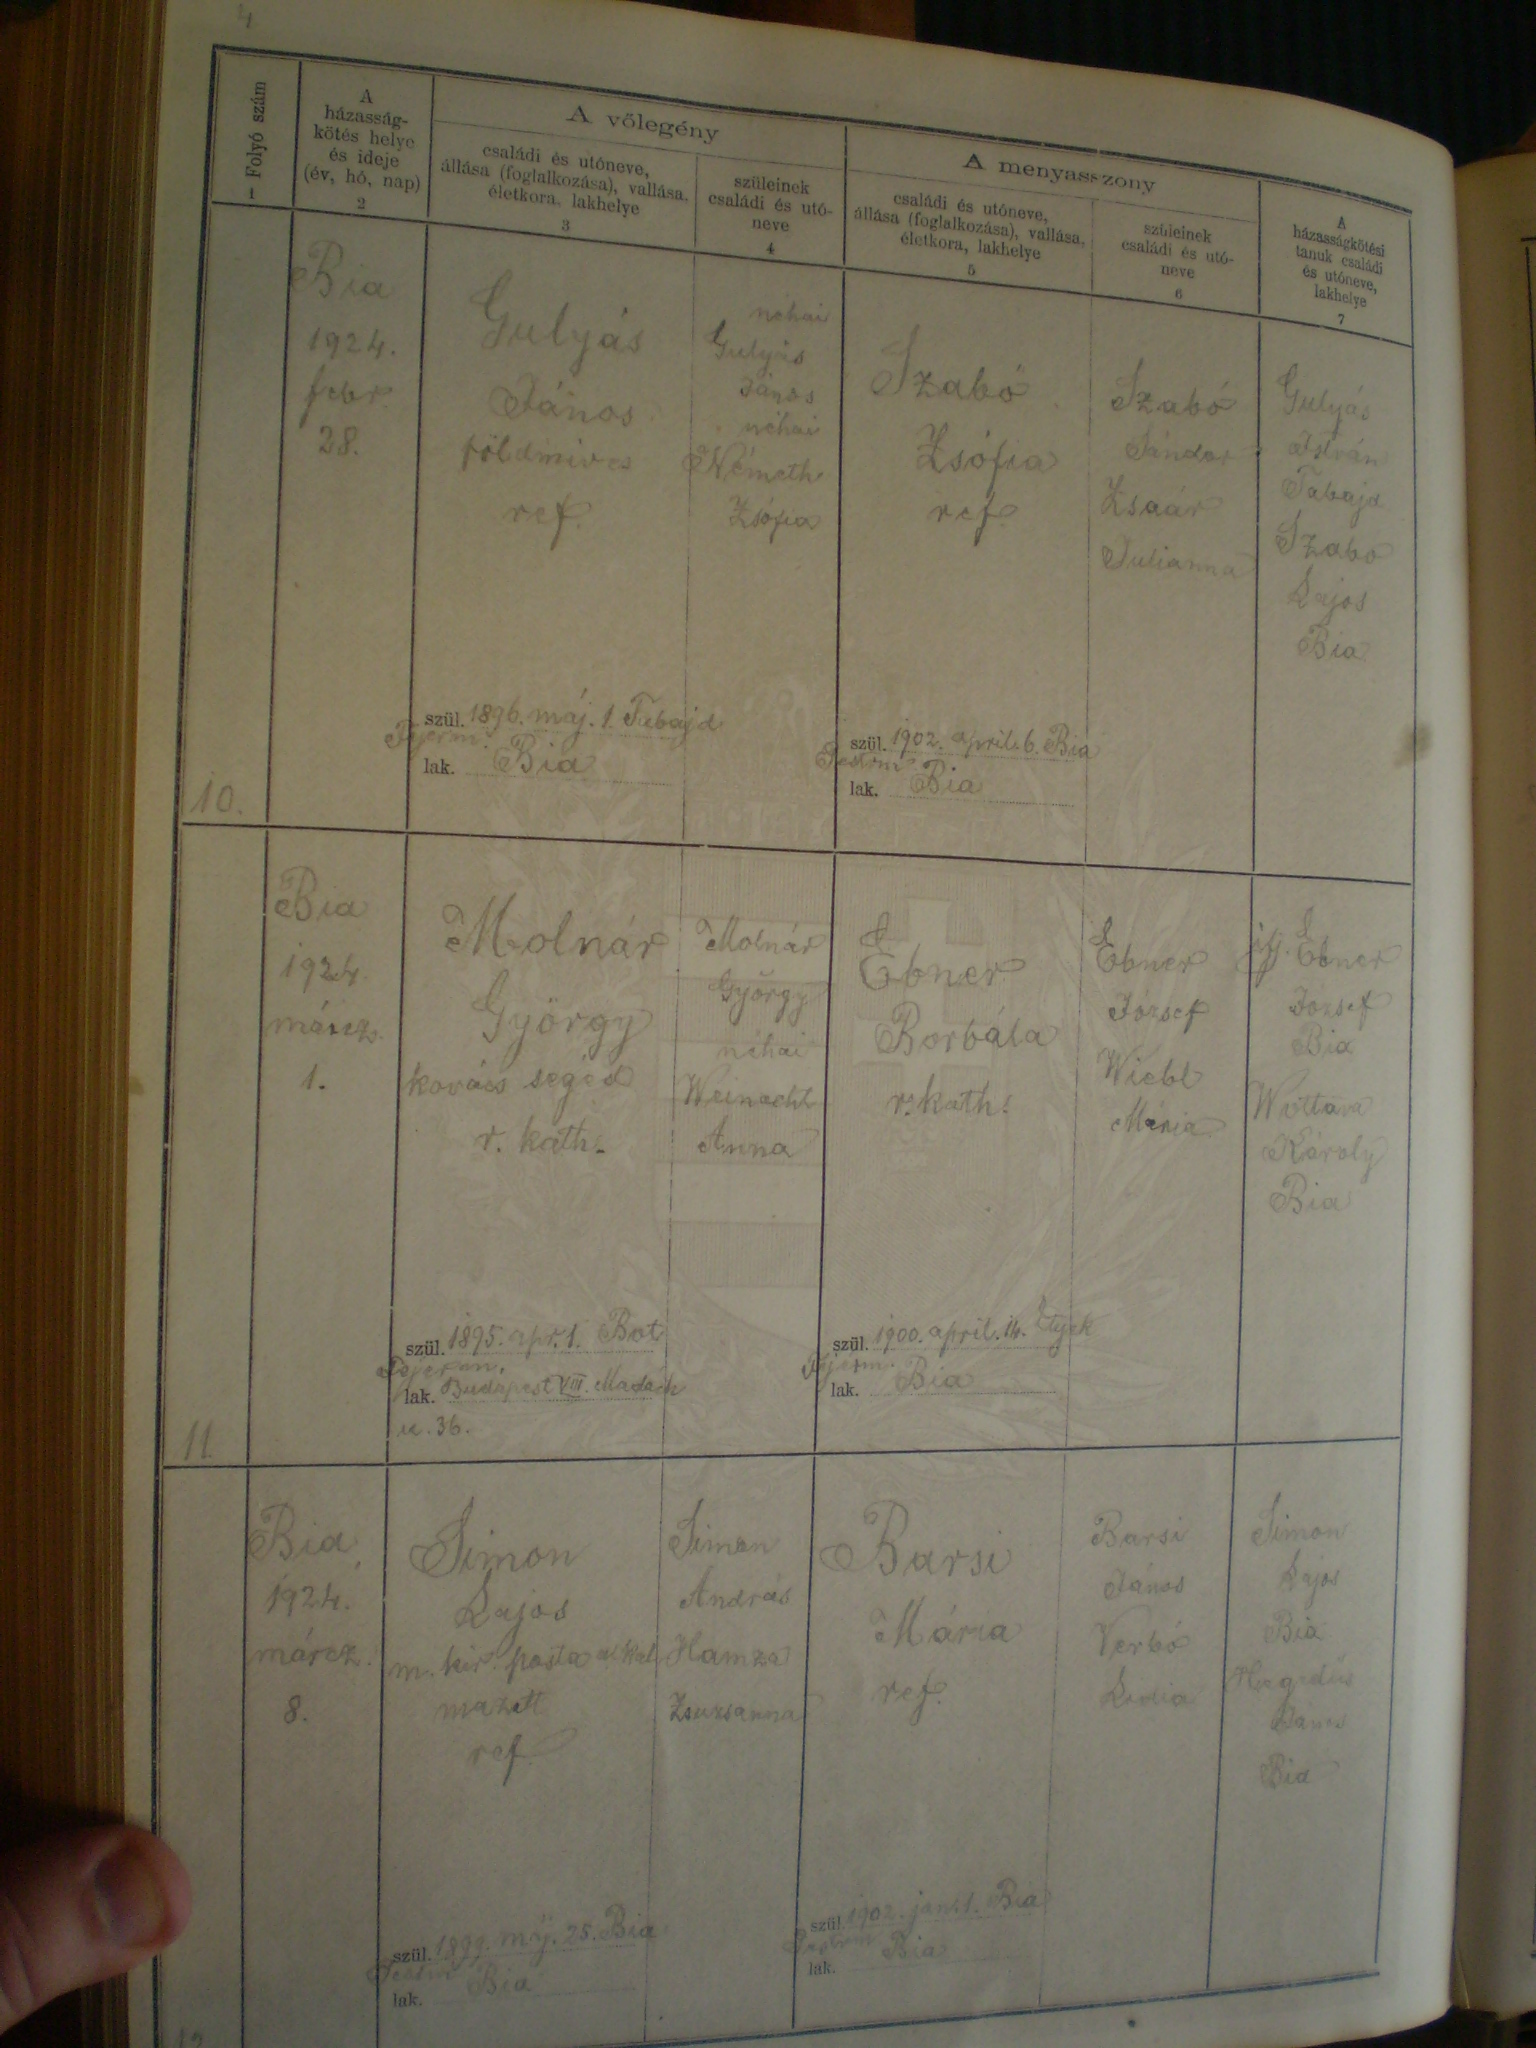 4
1 Folyó szám
A
házasság-
kötés helye
és ideje
(év, hó, nap)
2
A vőlegény
családi és utóneve,
állása (foglalkozása), vallása,
életkora, lakhelye
3
szüleinek
családi és utó-
neve
4
A menyasszony
családi és utóneve,
állása (foglalkozása), vallása,
életkora, lakhelye
5
szüleinek
családi és utó-
neve
6
A
házasságkötési
tanuk családi
és utóneve,
lakhelye
7
10.
Bia
1924.
febr.
28.
Gulyás
János
földmives
ref.
szül. 1896. máj. 1. Tabajd
Fejerm.
lak. Bia
néhai
Gulyás
János
néhai
Németh
Zsófia
Szabó
Zsófia
ref.
szül. 1902. april. 6. Bia
Pestvm
lak. Bia
Szabó
Sándor
Zsaár
Julianna
Gulyás
István
Tabajd
Szabó
Lajos
Bia
11.
Bia
1924.
márcz.
1.
Molnár
György
kovács segéd
r. kath.
szül. 1895. apr. 1. Bot
Fejerm.
lak. Budapest VIII. Madách
u. 36.
Molnár
György
néhai
Weinacht
Anna
Ebner
Borbála
r. kath.
szül. 1900. april. 14. Etyek
Fejerm.
lak. Bia
Ebner
József
Wiebl
Mária
ifj. Ebner
József
Bia
Wottava
Károly
Bia
12
Bia
1924.
márcz.
8.
Simon
Lajos
m. kir. posta alkal
mazott
ref.
szül. 1899. máj. 25. Bia
Pestvm
lak. Bia
Simon
András
Hamza
Zsuzsanna
Barsi
Mária
ref.
szül. 1902. jan. 1. Bia
Pestvm
lak. Bia
Barsi
János
Verbó
Lidia
Simon
Lajos
Bia
Hegedüs
János
Bia